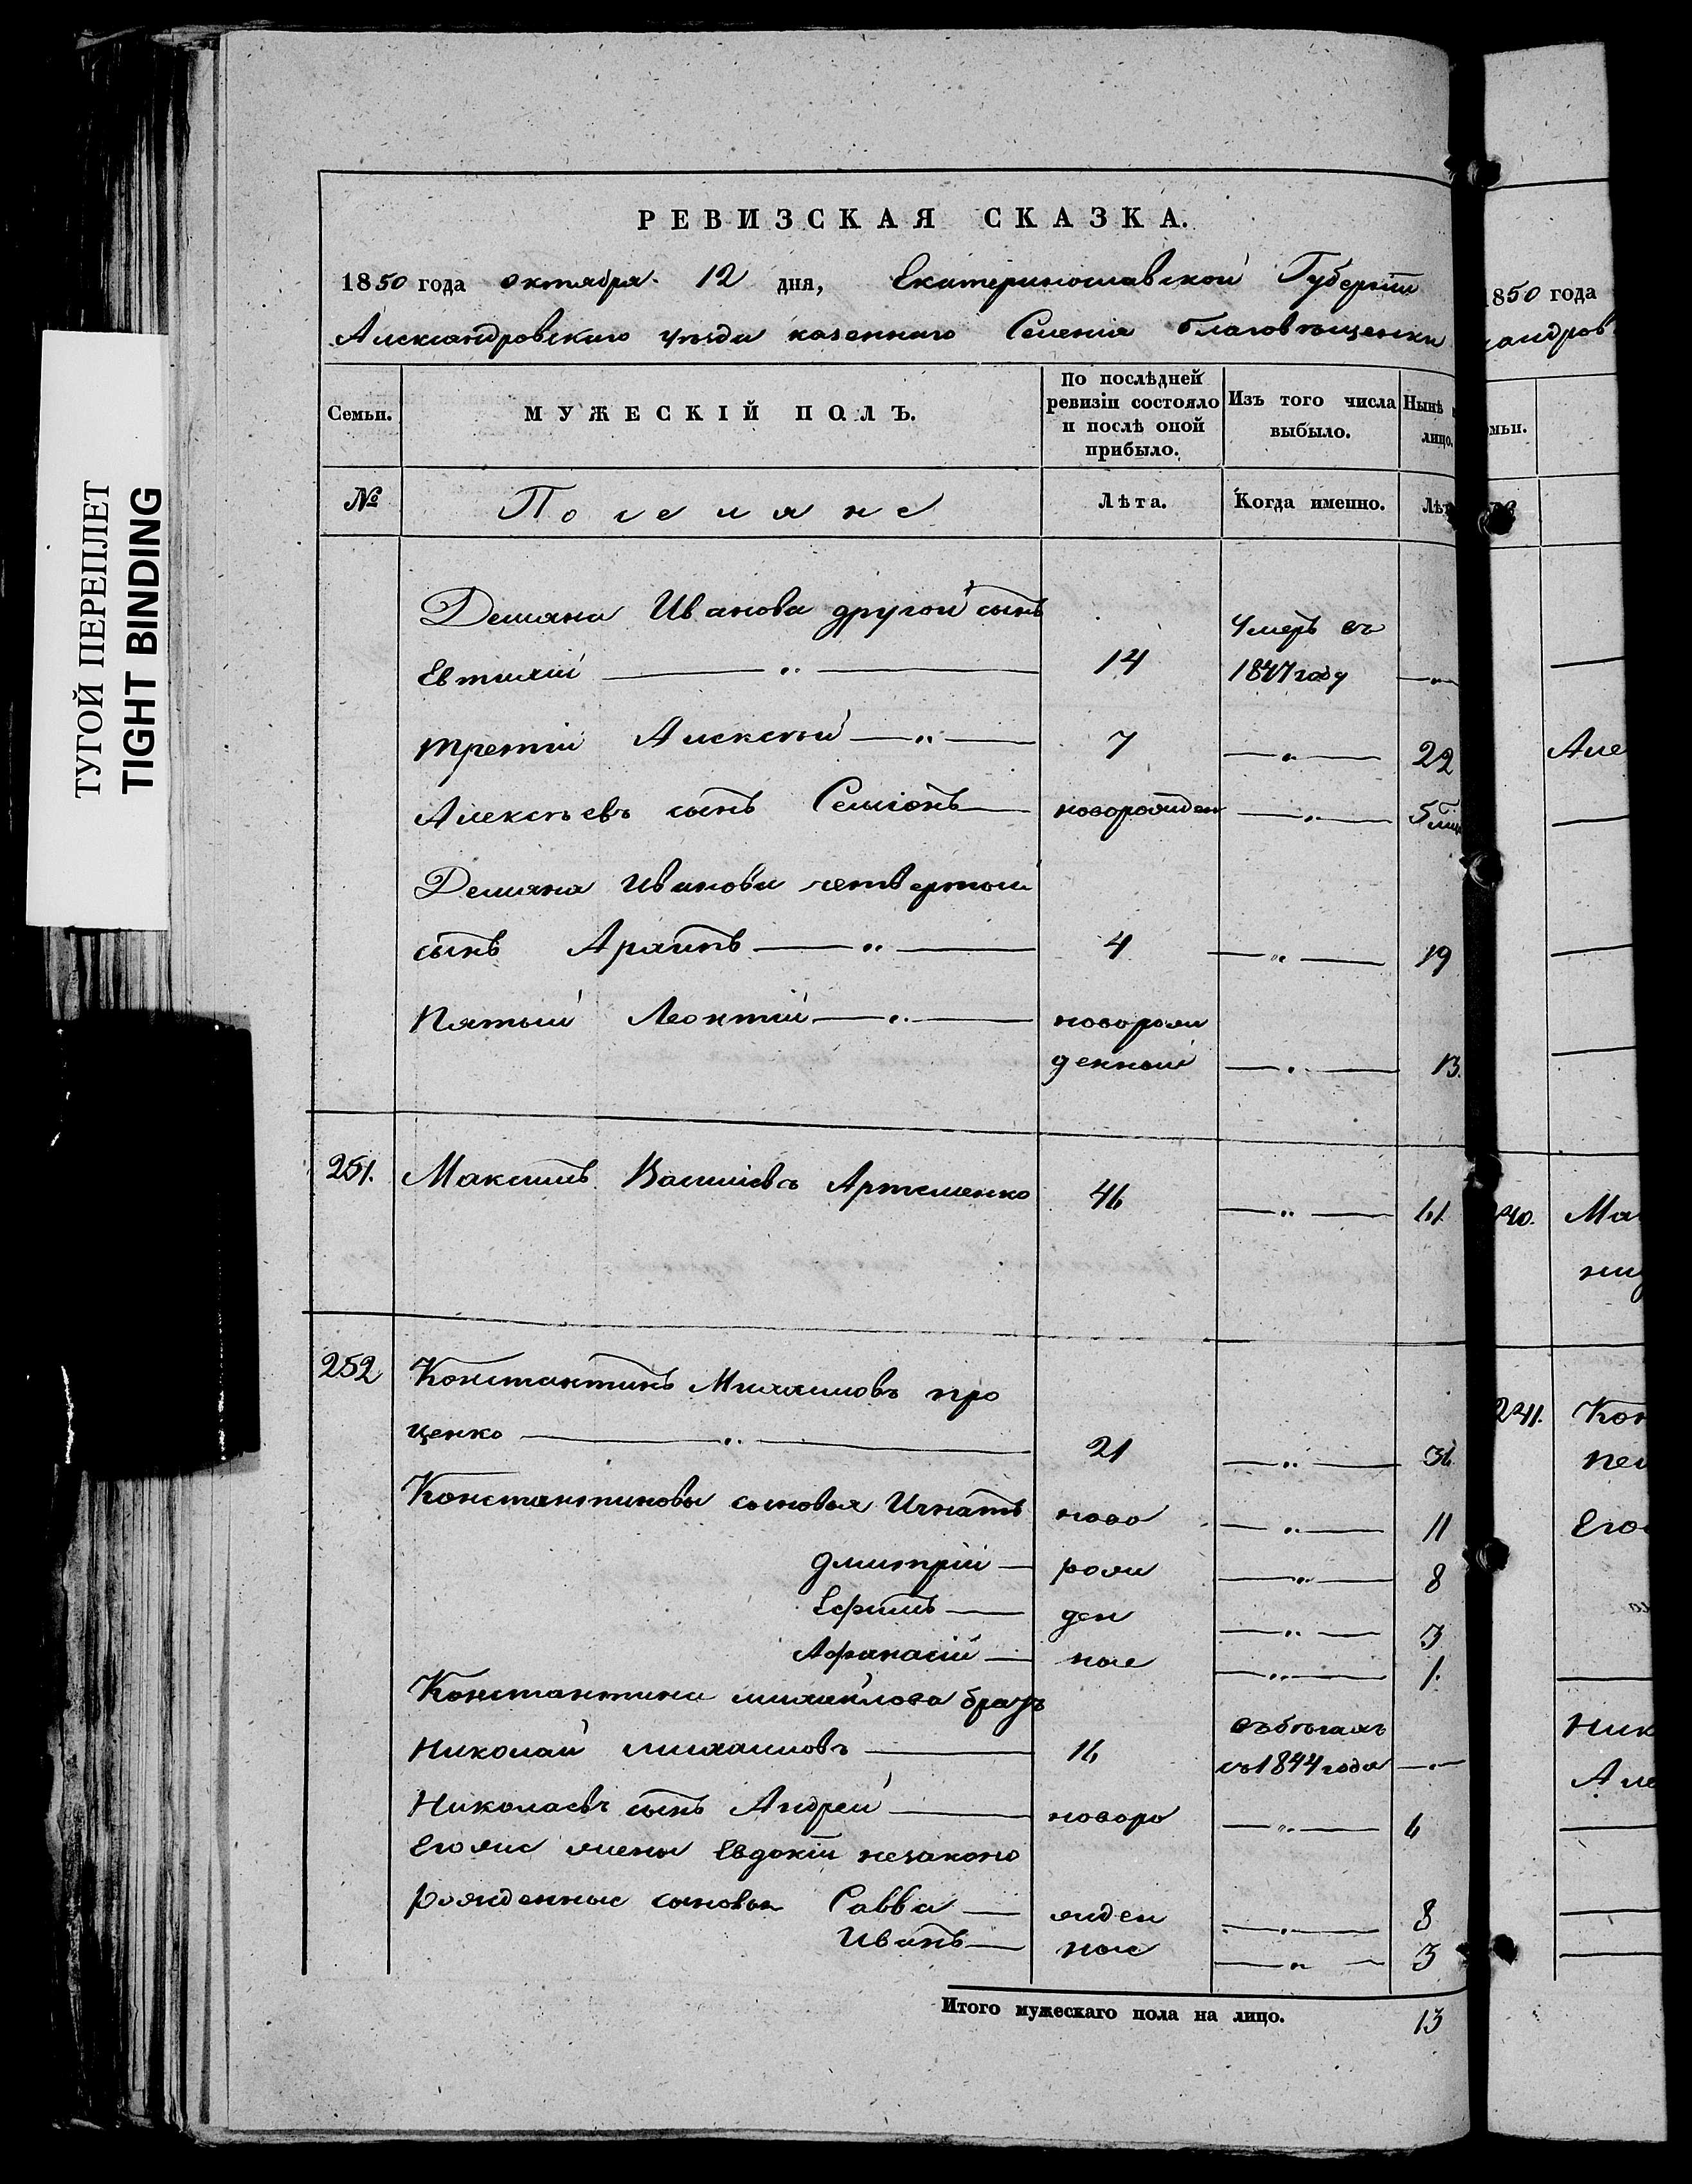 ТУГОЙ ПЕРЕПЛЕТ
TIGHT BINDING
РЕВИЗСКАЯ СКАЗКА.
1850 года октября 12 дня, Екатеринославской Губернии
Александровскаго уѣзда казеннаго Селенія благовѣщенки
Семьи. МУЖЕСКІЙ ПОЛЪ. По послѣдней ревизіи состояло и послѣ оной прибыло. Изъ того числа выбыло. Нынѣ лицо.
№ Поселяне Лѣта. Когда именно. Лѣт
Демяна Иванова другой сынъ Умеръ въ
Евтихій — „ — 14 1847 году — „
третій Алексѣй — „ — 7 — „ — 22
Алексѣевъ сынъ Семіонъ — новорожден — „ — 5 мц
Демяна Иванова четвертой
сынъ Архипъ — „ — 4 — „ — 19
Пятый Леонтій — „ — новорож
денный — „ — 13.
251. Максимъ Василіевъ Артеменко 46 — „ — 61
252 Константинъ Михаиловъ про
ценко — „ — 21 — „ — 36
Константиновы сыновья Игнатъ ново — „ — 11
Дмитрій — рож — „ — 8
Ефимъ — ден — „ — 3
Афанасій — ные — „ — 1.
Константина михайлова братъ въ бѣгахъ
Николай михаиловъ — 16 съ 1844 года — „
Николаевъ сынъ Андрей — новоро — „ — 6
Егоже жены Евдокіи незаконо
рожденные сыновья Савва — жден — „ — 8
Иванъ — ные — „ — 3
Итого мужескаго пола на лицо. 13
1850 года
андров
мьи.
Але
240. Ма
241. Кон
Его
Ник
Але